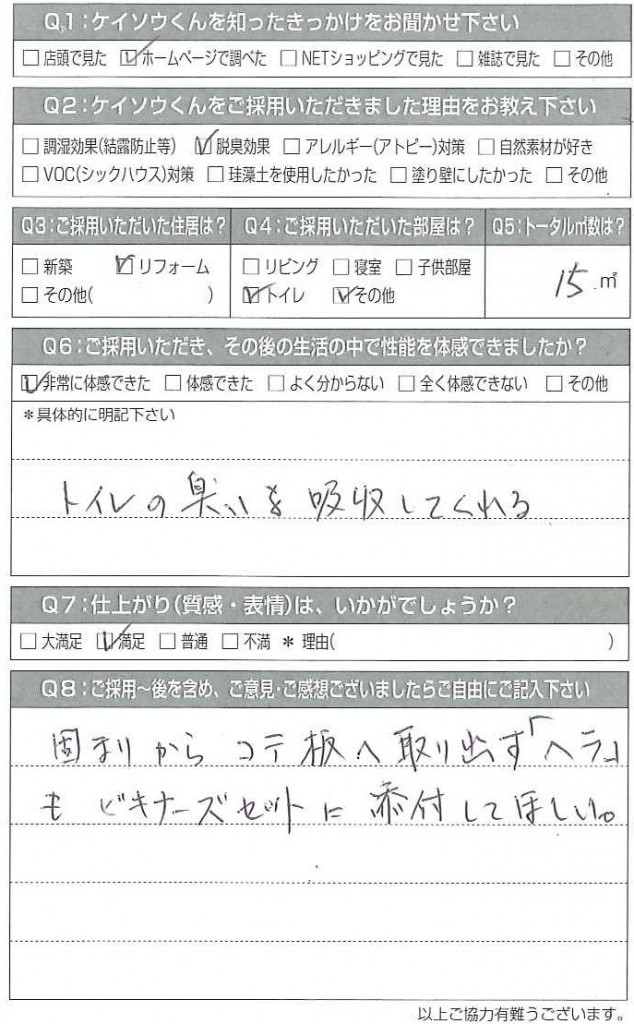 Q.1:ケイソウくんを知ったきっかけをお聞かせ下さい
□店頭で見た ☑ホームページで調べた □NETショッピングで見た □雑誌で見た □その他
Q2:ケイソウくんをご採用いただきました理由をお教え下さい
□調湿効果(結露防止等) ☑脱臭効果 □アレルギー(アトピー)対策 □自然素材が好き
□VOC(シックハウス)対策 □珪藻土を使用したかった □塗り壁にしたかった □その他
Q3:ご採用いただいた住居は? Q4:ご採用いただいた部屋は? Q5:トータル㎡数は?
□新築 ☑リフォーム □リビング □寝室 □子供部屋 15.㎡
□その他( ) ☑トイレ ☑その他
Q6:ご採用いただき、その後の生活の中で性能を体感できましたか?
☑非常に体感できた □体感できた □よく分からない □全く体感できない □その他
*具体的に明記下さい
トイレの臭いを吸収してくれる
Q7:仕上がり(質感・表情)は、いかがでしょうか?
□大満足 ☑満足 □普通 □不満 *理由( )
Q8:ご採用~後を含め、ご意見・ご感想ございましたらご自由にご記入下さい
固まりからコテ板へ取り出す「ヘラ」
もビキナーズセットに添付してほしい。
以上ご協力有難うございます。